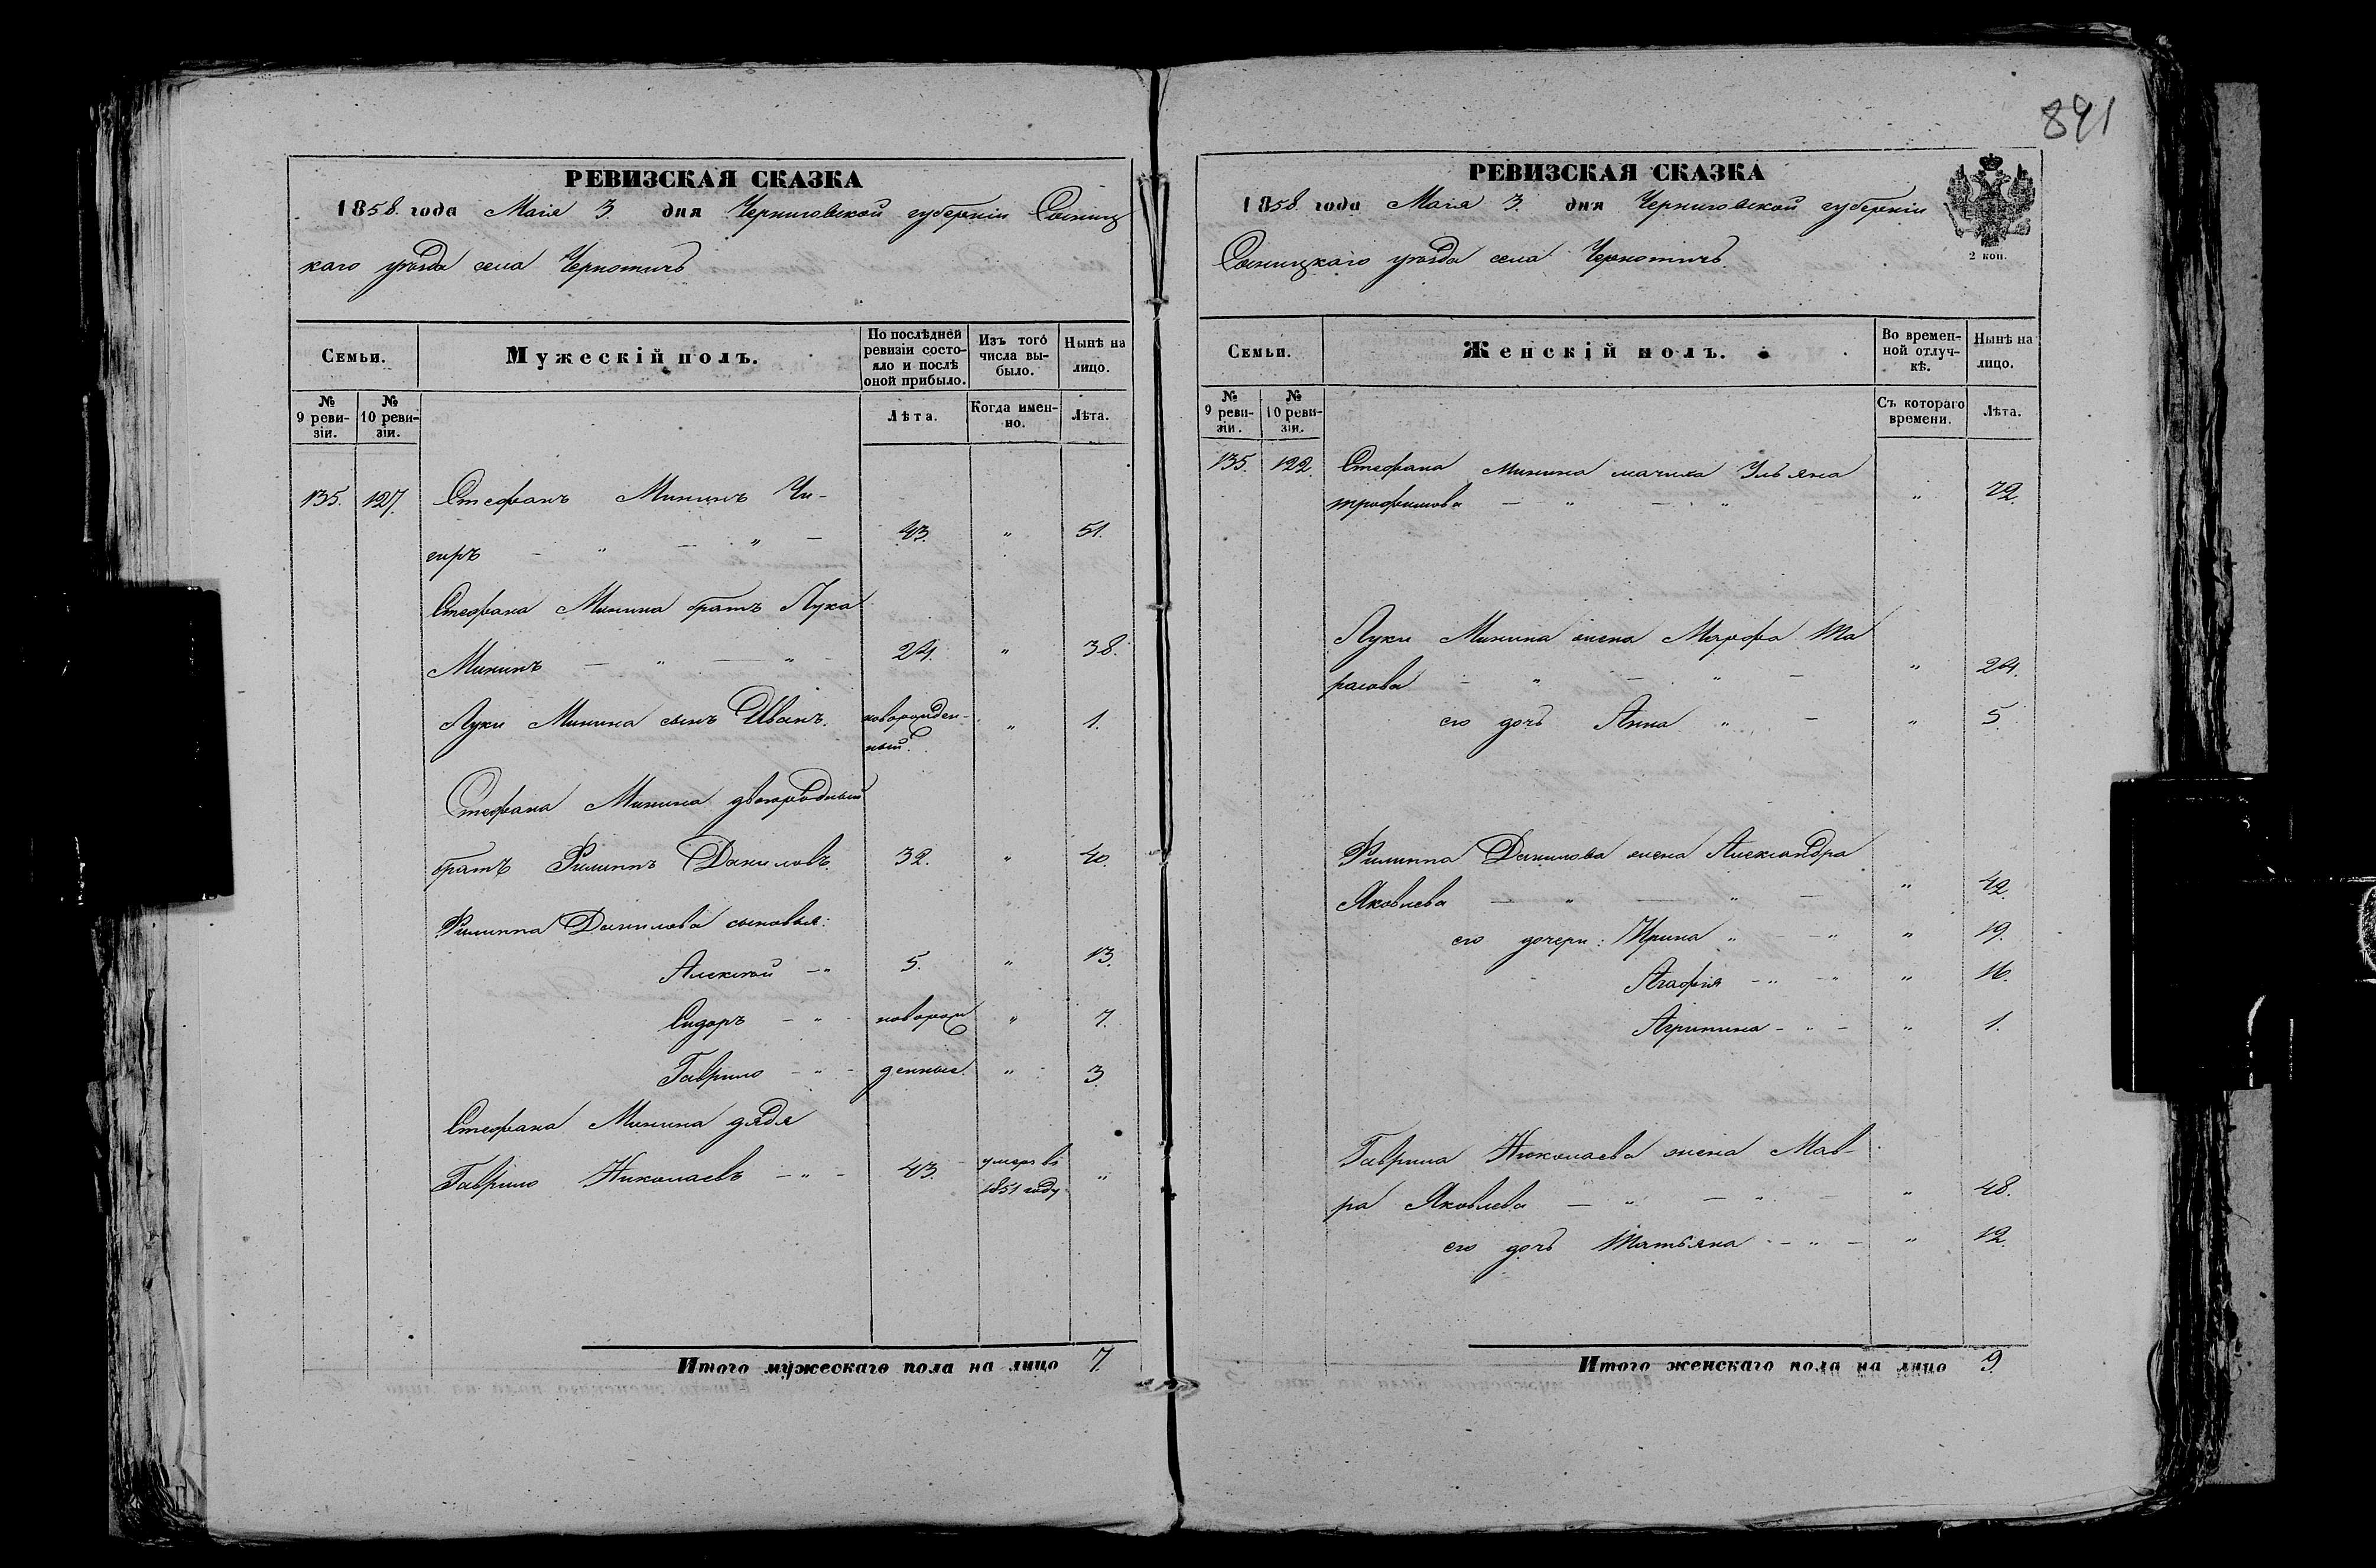 841
РЕВИЗСКАЯ СКАЗКА
1858. года Маія 3 дня Черниговской губерніи Сосниц
каго уѣзда села Чернотичь
Семьи.
Мужескій полъ.
По послѣдней ревизіи состояло и послѣ оной прибыло.
Изъ того числа выбыло.
Нынѣ на лицо.
№ 9 ревизіи.
№ 10 ревизіи.
Лѣта.
Когда именно.
Лѣта.
135. 127. Стефанъ Мининъ Чи-
гиръ — „ — „ — 43. „ 51.
Стефана Минина братъ Лука
Мининъ — „ — „ — 24. „ 38.
Луки Минина сынъ Иванъ. новорожден-
ный. „ 1.
Стефана Минина двоюродный
братъ Филиппъ Даниловъ. 32. „ 40.
Филиппа Данилова сыновья:
Алексѣй — „ 5. „ 13.
Сидоръ — „ — новорож „ 7.
Гаврило — „ — денные. „ 3
Стефана Минина дядя
Гаврило Николаевъ — „ — 43. умеръ въ
1851 году „
Итого мужескаго пола на лицо 7.
РЕВИЗСКАЯ СКАЗКА
1858. года Маія 3. дня Черниговской губерніи
Сосницкаго уѣзда села Чернотичь.
2 коп.
Семьи.
Женскій полъ.
Во временной отлучкѣ.
Нынѣ на лицо.
№ 9 ревизіи.
№ 10 ревизіи.
Съ котораго времени.
Лѣта.
135. 122. Стефана Минина мачиха Ульяна
Трофимова — „ — „ — „ 72.
Луки Минина жена Марфа Та
расова — „ — „ — „ 24.
его дочь Анна „ — „ 5.
Филиппа Данилова жена Александра
Яковлева — „ — „ — „ 42.
его дочери: Ирина „ — „ „ 19.
Агафія — „ — „ „ 16.
Агрипина — „ — „ 1.
Гаврила Николаева жена Мав-
ра Яковлева — „ — „ — „ 48.
его дочь Татьяна — „ — „ 12.
Итого женскаго пола на лицо 9